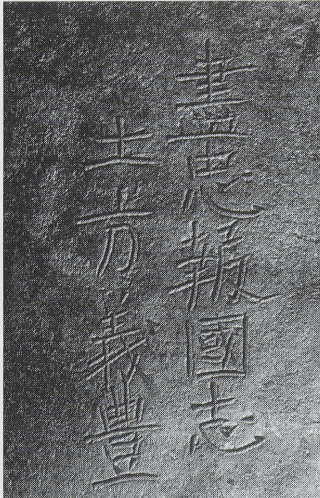 盡忠報國志
土方義豊